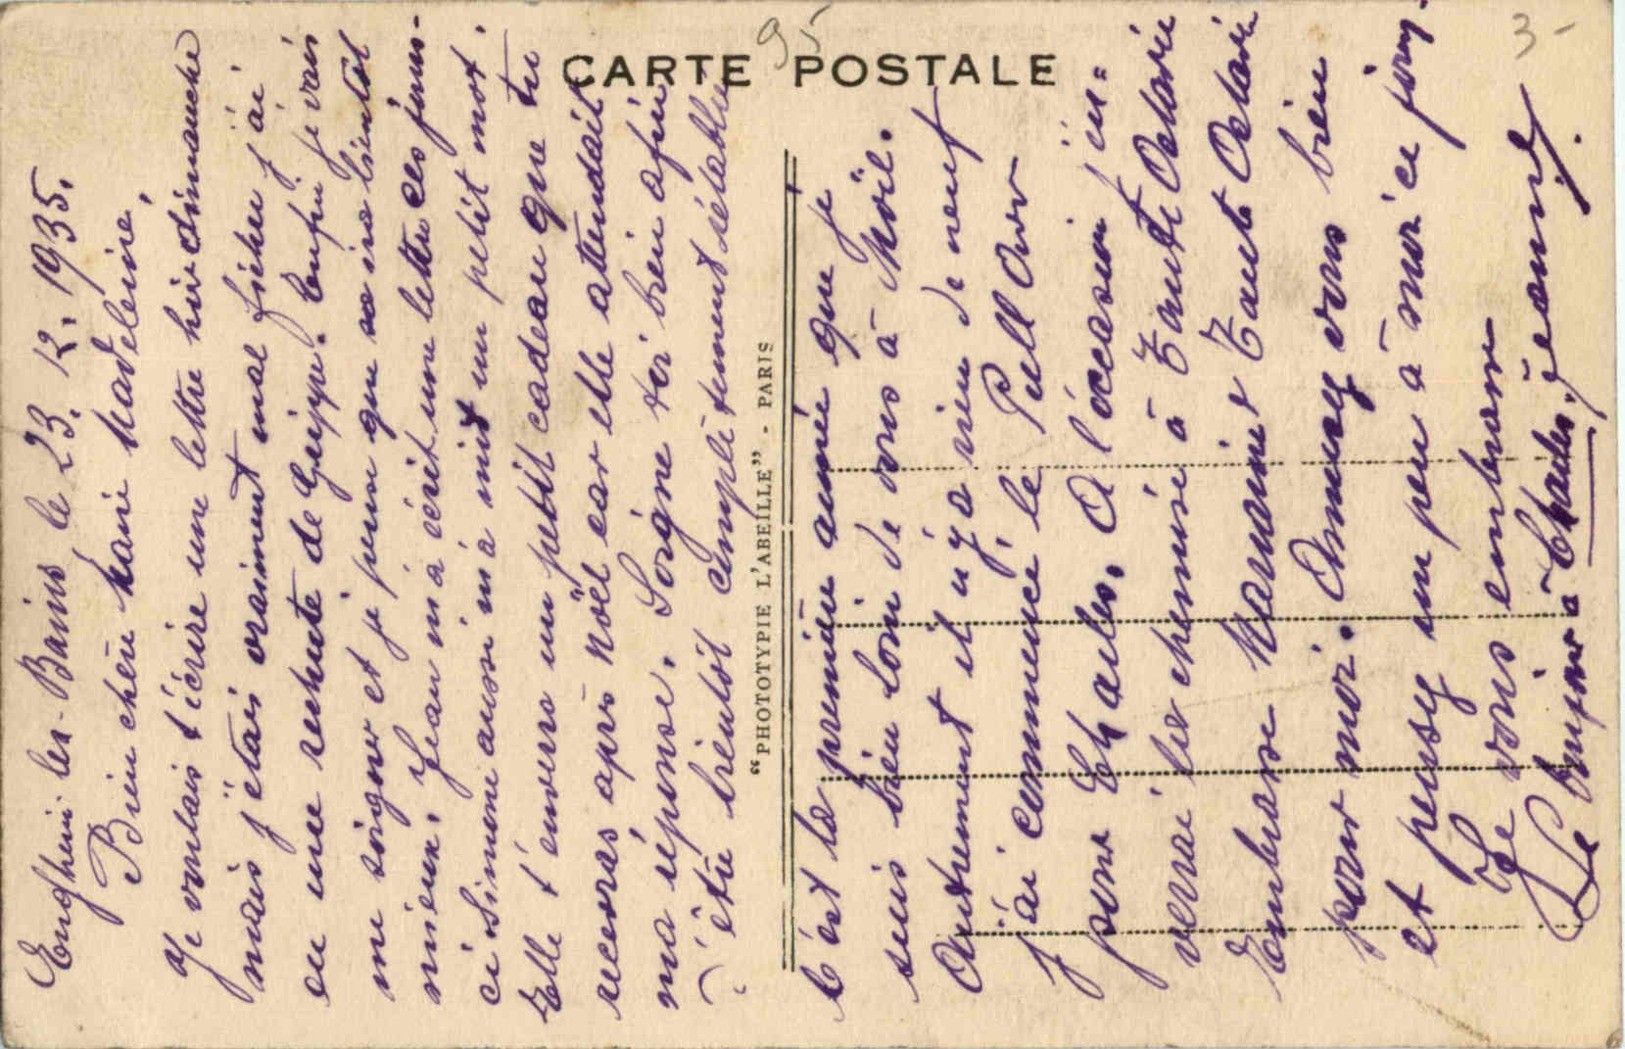 CARTE POSTALE
95
3-
"PHOTOTYPIE L'ABEILLE" - PARIS
Enghein-les-Bains le 23. 12. 1935.
Bien chère Marie Madeleine,
Je voulais t'écrire une lettre hier dimanche
mais j'étais vraiment mal fichu j'ai
eu une rechute de Grippe. Enfin je vais
me soigner et je pense que ça ira bientôt
mieux. Jean m'a écrit une lettre ces jours-
ci Simone aussi m'a mit un petit mot.
Elle t'enverra un petit cadeau que tu
recevras après Noël car elle attendait
ma réponse. Soigne toi bien afin
d'être bientôt complètement rétablie
C'est la première année que je
suis bien loin de vous à Noël.
Autrement il n'y a rien de neuf
j'ai commencé le Pull Over
pour Charles. A l'occasion j'en-
verrai les chemise à Tante Octavie
Embrasse Maman et Tante Octavie
pour moi. Amusez vous bien
et pensez un peu à moi ce jour-
Je vous embrasse
Jeanne.
Le Bonjour à Charles.